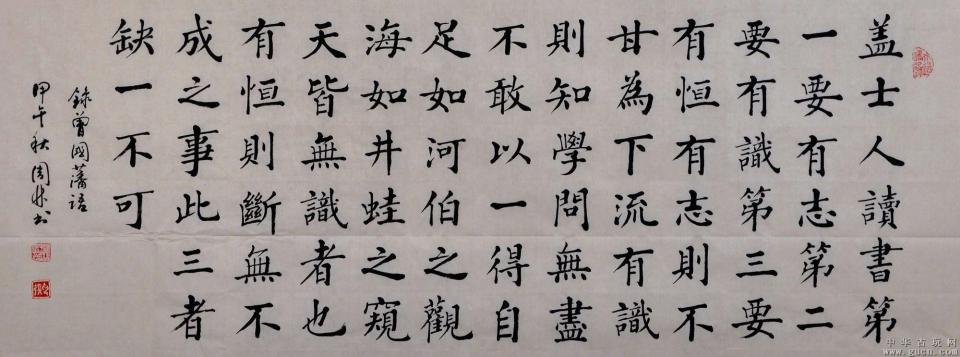 盖士人讀書第
一要有志第二
要有識第三要
有恒有志則不
甘為下流有識
則知學問無盡
不敢以一得自
足如河伯之觀
海如井蛙之窺
天皆無識者也
有恒則斷無不
成之事此三者
缺一不可
錄曾國藩語
甲午秋周林书
中华古玩网
www.gucn.com